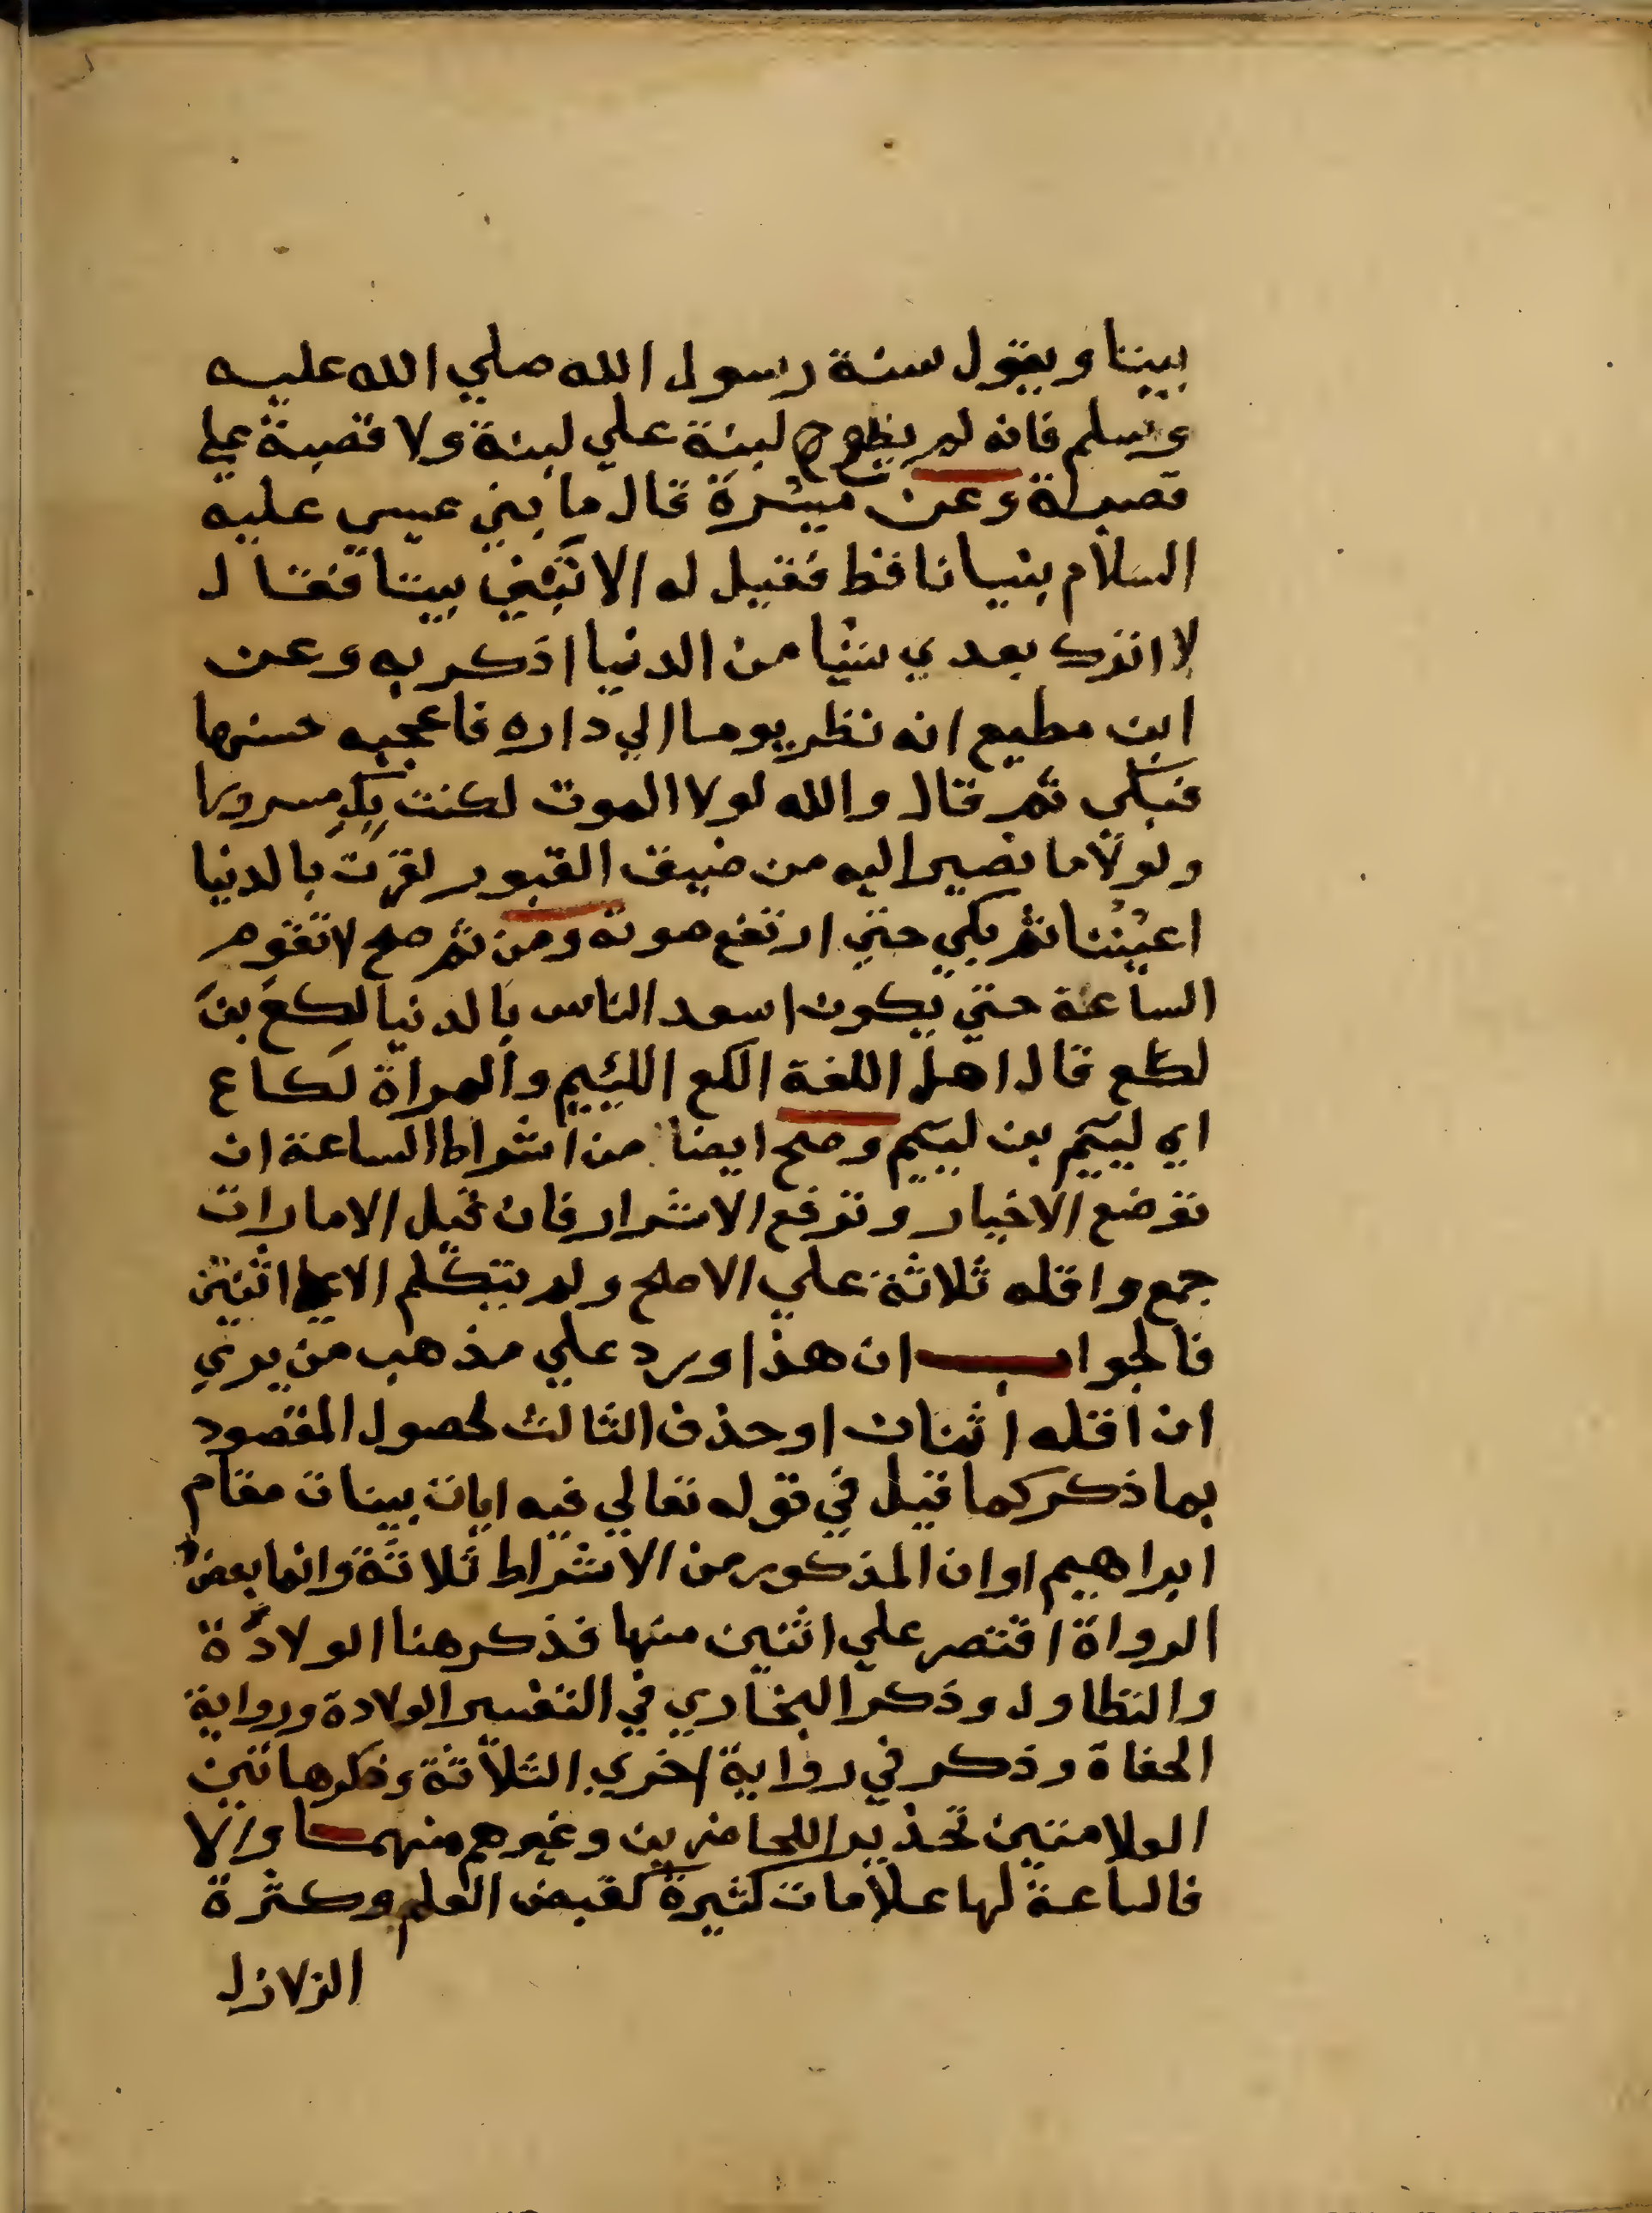 بيتا ويقول سنة رسول الله صلي الله عليه
وسلم فانه لم يضع لبنة علي لبنة ولا قصبة علي
قصبة وعن ميسرة قال ما بني عيسي عليه
السلام بنيانا قط فقيل له الا تبني بيتا فقال
لا اترك بعدي شيا من الدنيا اذكر به وعن
ابن مطيع انه نظر يوما الي داره فاعجبه حسنها
فبكي ثم قال والله لولا الموت لكنت بك مسرورا
ولولا ما نصير اليه من ضيق القبور لقرت بالدنيا
اعيننا ثم بكي حتي ارتفع صوته ومن ثم صح لا تقوم
الساعة حتي يكون اسعد الناس بالدنيا لكع بن
لكع قال اهل اللغة الكع اللئيم والمراة لكاع
اي لييم بن لييم وصح ايضا من اشراط الساعة ان
توضع الاخيار وترفع الاشرار فان قيل الامارات
جمع واقله ثلاثة علي الاصح ولم يتكلم الا اثنتين
فالجواب ان هذا ورد علي مذهب من يري
ان اقله اثنان او حذف الثالث لحصول المقصود
بما ذكر كما قيل في قوله تعالي فيه ايات بينات مقام
ابراهيم اوان المذكور من الاشراط ثلاثة وانما بعض
الرواة اقتصر علي اثنين منها فذكر هنا الولادة
والتطاول وذكر البخاري في التفسير الولادة ورواية
الحفاة وذكر في رواية اخري الثلاثة وذكر هاتين
العلامتين تحذيرا للحاضرين وغيرهم منهما والا
فالساعة لها علامات كثيرة كقبض العلم وكثرة
الزلازل